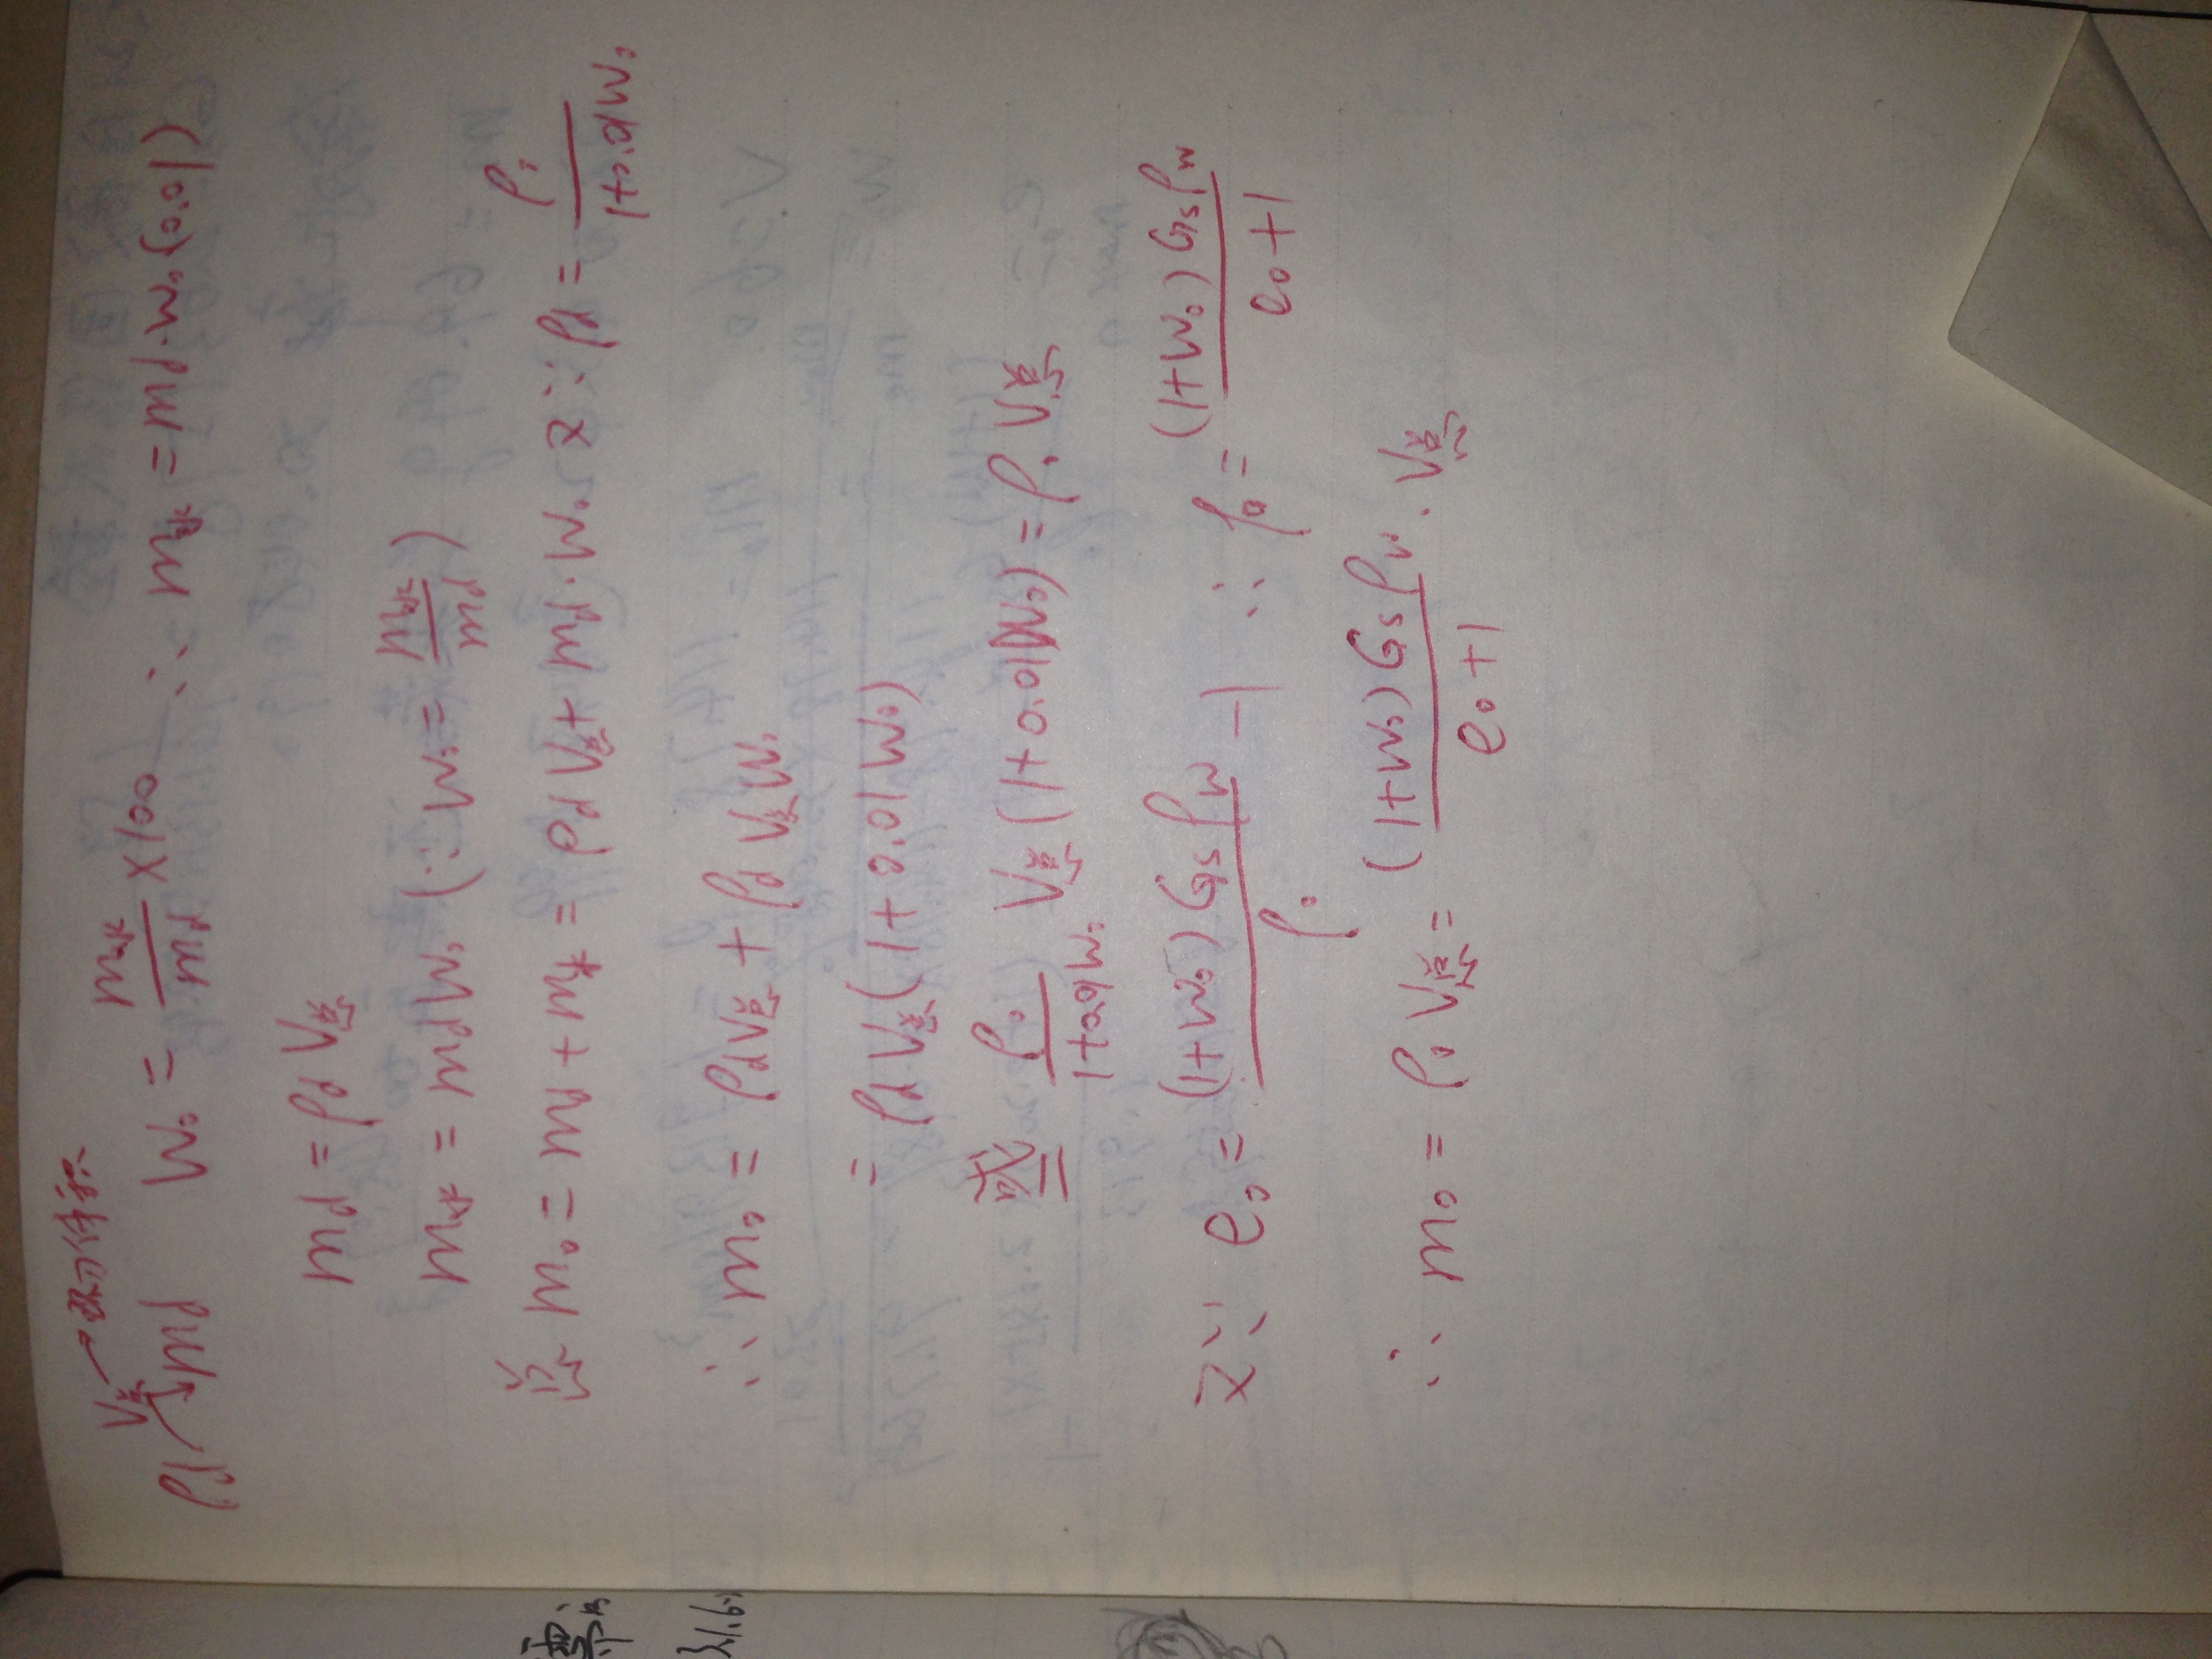 m水
V总 → 环刀体积
ρd md w₀ = m水/md ×100 ∴ m水 = md·w₀(0.01)
md = ρd V总
m水 = md w₀ (∵ w₀ = m水/md)
总 m₀ = md + m水 = ρd V总 + md·w₀ 又∵ρd = ρ₀/(1+0.01w₀)
∴ m₀ = ρd V总 + ρd V总 w₀
= ρd V总 (1+0.01w₀)
或 ρ₀/(1+0.01w₀) V总 (1+0.01w₀) = ρ₀ V总
又∵ e₀ = (1+w₀)Gsρw/ρ₀ − 1 ∴ ρ₀ = (1+w₀)Gsρw/(e₀+1)
∴ m₀ = ρ₀ V总 = (1+w₀)Gsρw/(e₀+1) · V总